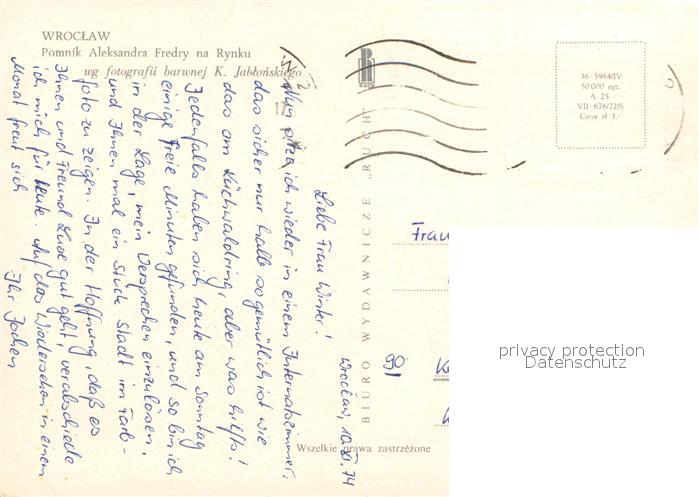 WROCŁAW
Pomnik Aleksandra Fredry na Rynku
wg fotografii barwnej K. Jabłońskiego
36-5964/IV
50 000 egz.
A 25
VII-676/72/S
Cena zł 3.-
BIURO WYDAWNICZE „RUCH"
Wszelkie prawa zastrzeżone
Wrocław, 10.XI.74
Liebe Frau Winter!
Nun sitze ich wieder in einem Internatszimmer,
das sicher nur halb so gemütlich ist wie
das am Küchwaldring, aber was hilft's!
Jedenfalls haben sich heute am Sonntag
einige freie Minuten gefunden, und so bin ich
in der Lage, mein Versprechen einzulösen,
und Ihnen mal ein Stück Stadt im Farb-
foto zu zeigen. In der Hoffnung, daß es
Ihnen und Freund Luxe gut geht, verabschiede
ich mich für heute. Auf das Wiedersehen in einem
Monat freut sich
Ihr Jochen
Frau
99
privacy protection
Datenschutz